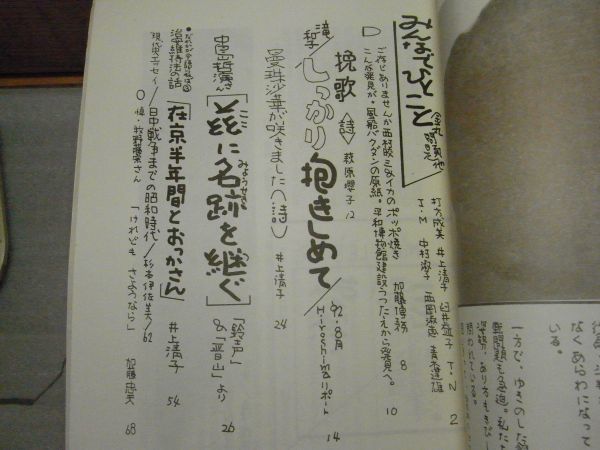 みんなでひとこと
打矢成美 井上清子 臼井益子 T・N
T・M 中村淑子 西岡淑恵 青木達雄
2
ご存じありませんか西村暁三&イカのポッポ焼き 加藤博務 8
こんな発見が。風船バクダンの原紙。平和博物館建設うったえから発見へ。 10
挽歌〈詩〉萩原櫻子 12
しっかり抱きしめて
'92・8月 Hiroshimaリポート
14
曼珠沙華が咲きました〈詩〉 井上清子 24
[茲に名跡を継ぐ]
ここ
みょうせき
「鈴声」の「晋山」より 26
治安維持法の話
[在京半年間とおっかさん] 井上清子 54
現代史エッセイ/日中戦争までの昭和時代/杉本伊佐美/62
○悼・牧野さん 「けれども さようなら」 加藤忠夫 68
一方で、ゆきのした
なくあらわになって
いる。